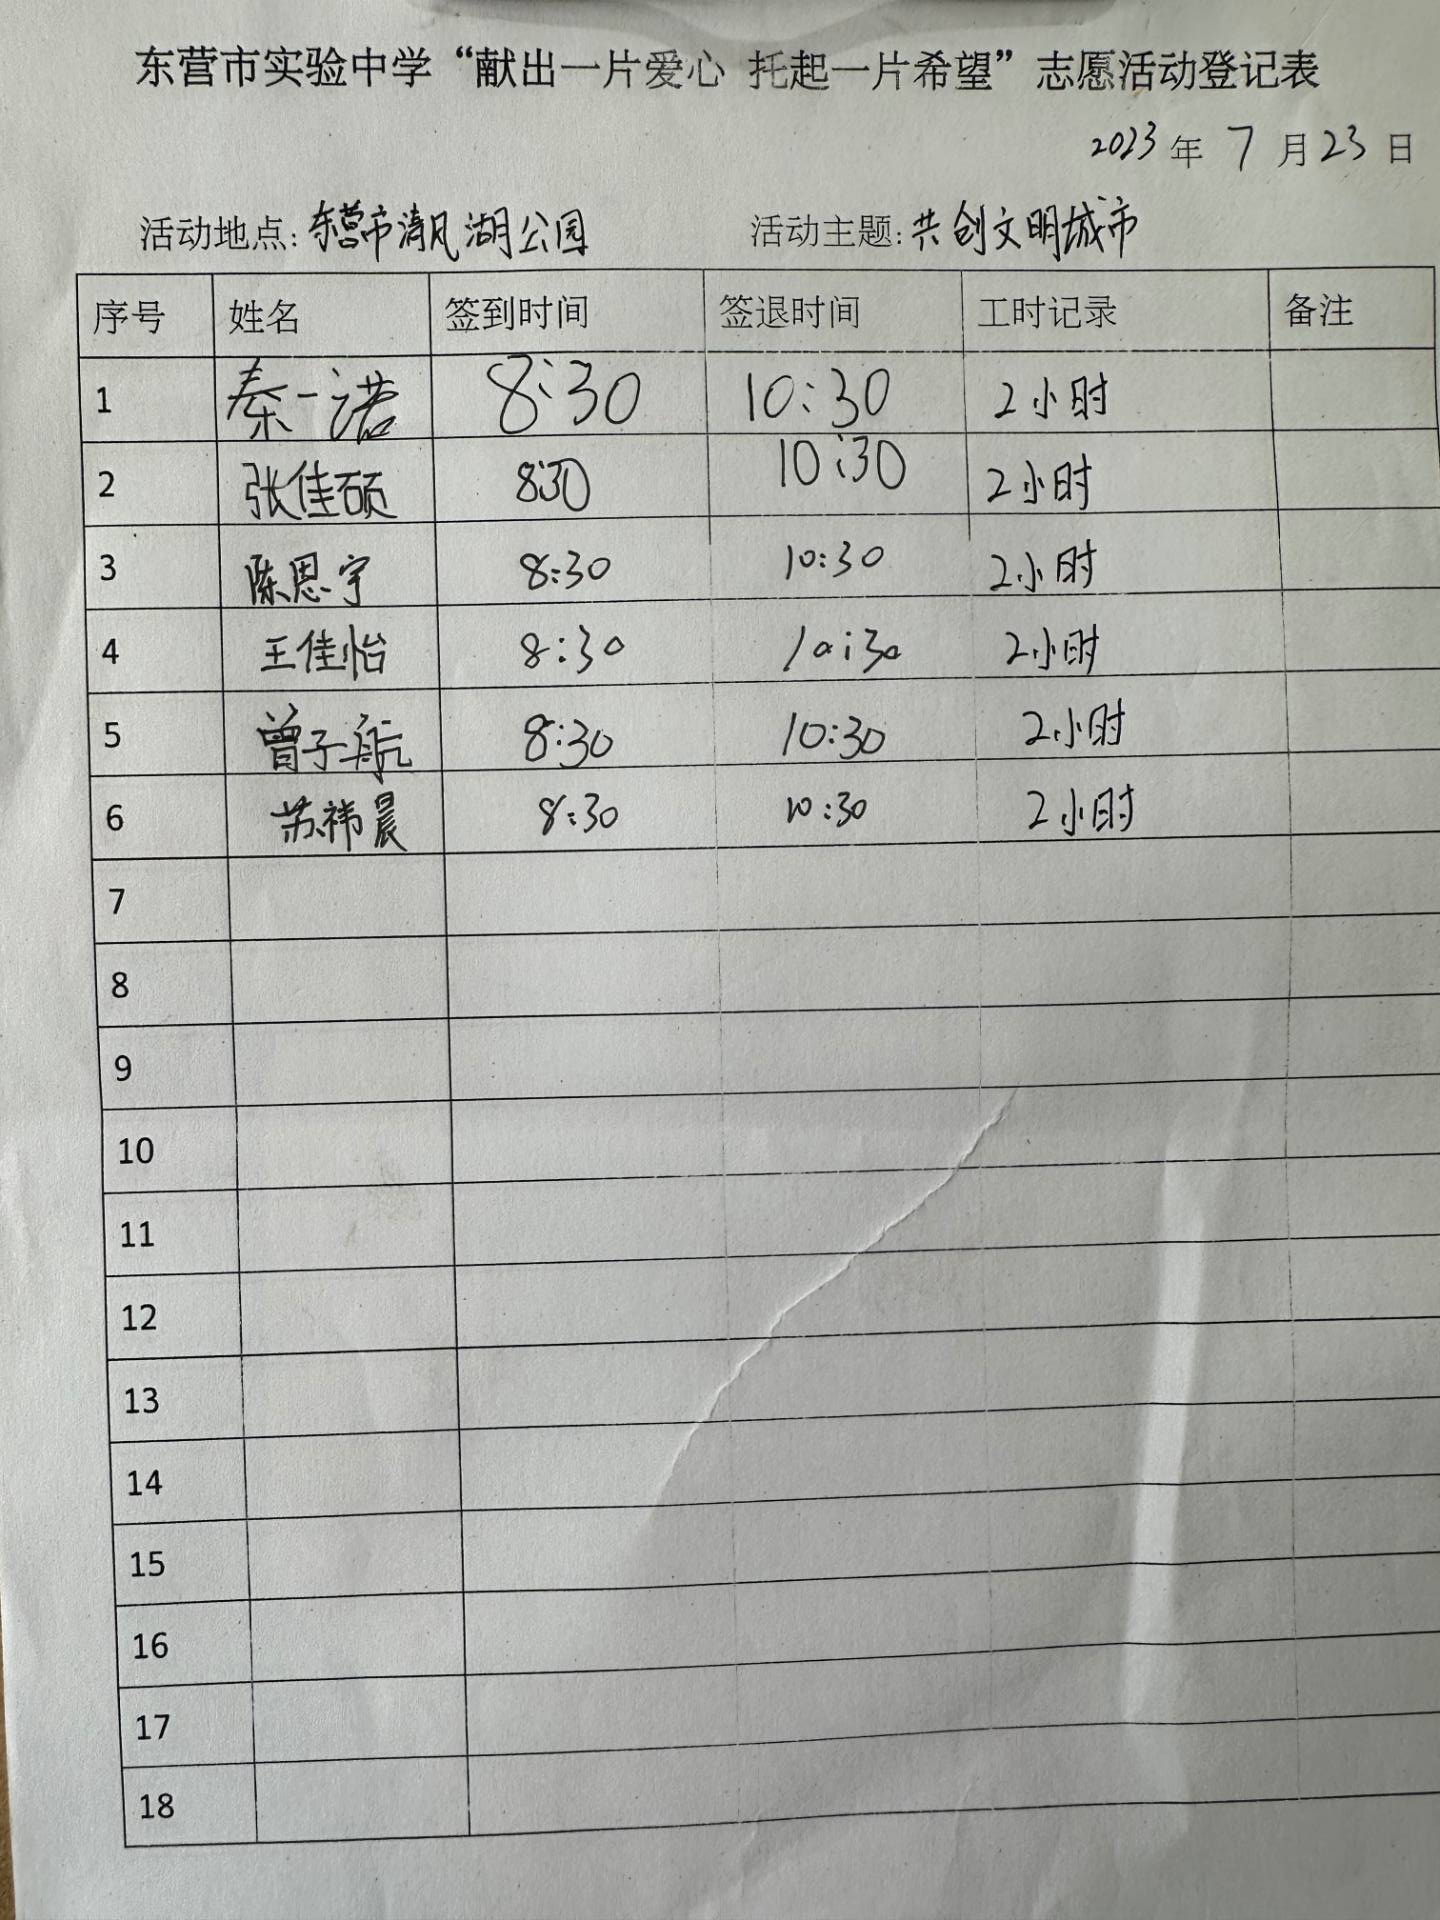 东营市实验中学“献出一片爱心 托起一片希望”志愿活动登记表
2023年 7月23日
活动地点:东营市清风湖公园 活动主题:共创文明城市
序号 姓名 签到时间 签退时间 工时记录 备注
1 秦一诺 8:30 10:30 2小时
2 张佳硕 8:30 10:30 2小时
3 陈恩宇 8:30 10:30 2小时
4 王佳怡 8:30 10:30 2小时
5 曾子航 8:30 10:30 2小时
6 苏祎晨 8:30 10:30 2小时
7
8
9
10
11
12
13
14
15
16
17
18